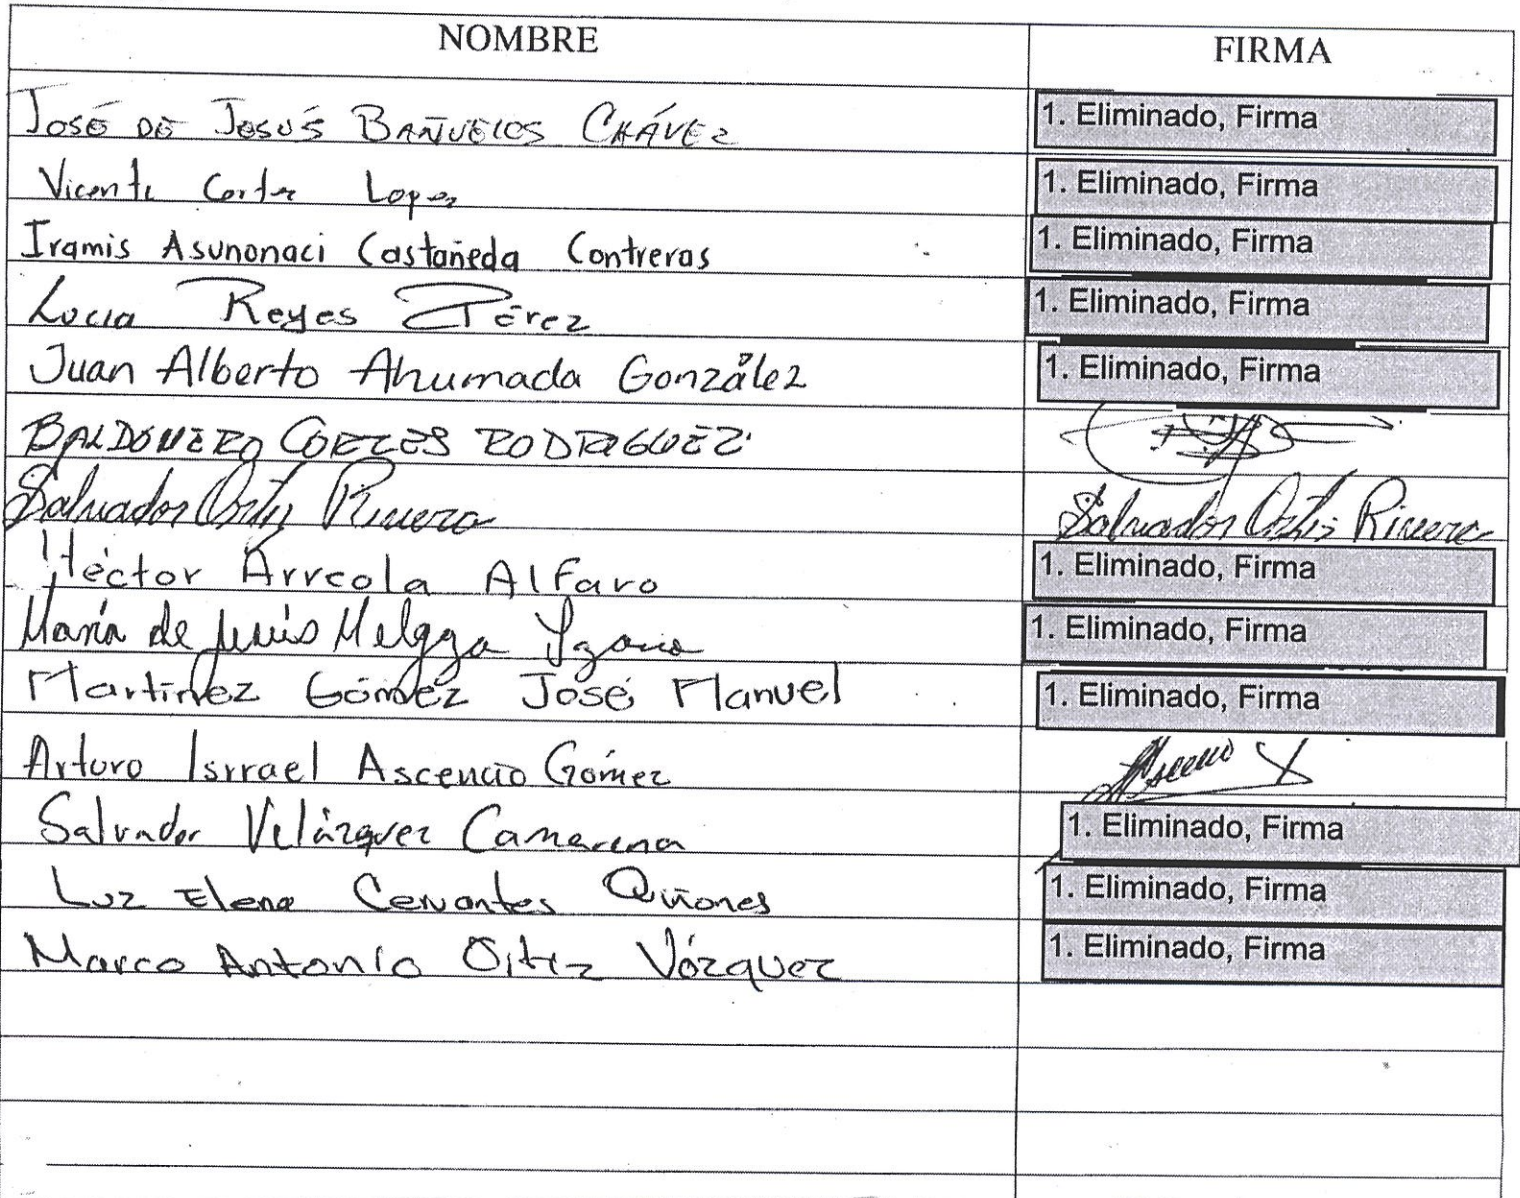 NOMBRE FIRMA
José de Jesús Bañuelos Chávez 1. Eliminado, Firma
Vicente Cortez Lopez 1. Eliminado, Firma
Iramis Asunonaci Castañeda Contreras 1. Eliminado, Firma
Lucia Reyes Pérez 1. Eliminado, Firma
Juan Alberto Ahumada González 1. Eliminado, Firma
BALDOMERO CORTES RODRIGUEZ
Salvador Ortiz Rivera Salvador Ortiz Rivera
Héctor Arreola Alfaro 1. Eliminado, Firma
María de Jesús Melgoza 1. Eliminado, Firma
Martínez Gómez José Manuel 1. Eliminado, Firma
Arturo Isrrael Ascencio Gómez
Salvador Velázquez Camarena 1. Eliminado, Firma
Luz Elena Cervantes Quiñones 1. Eliminado, Firma
Marco Antonio Ortiz Vázquez 1. Eliminado, Firma